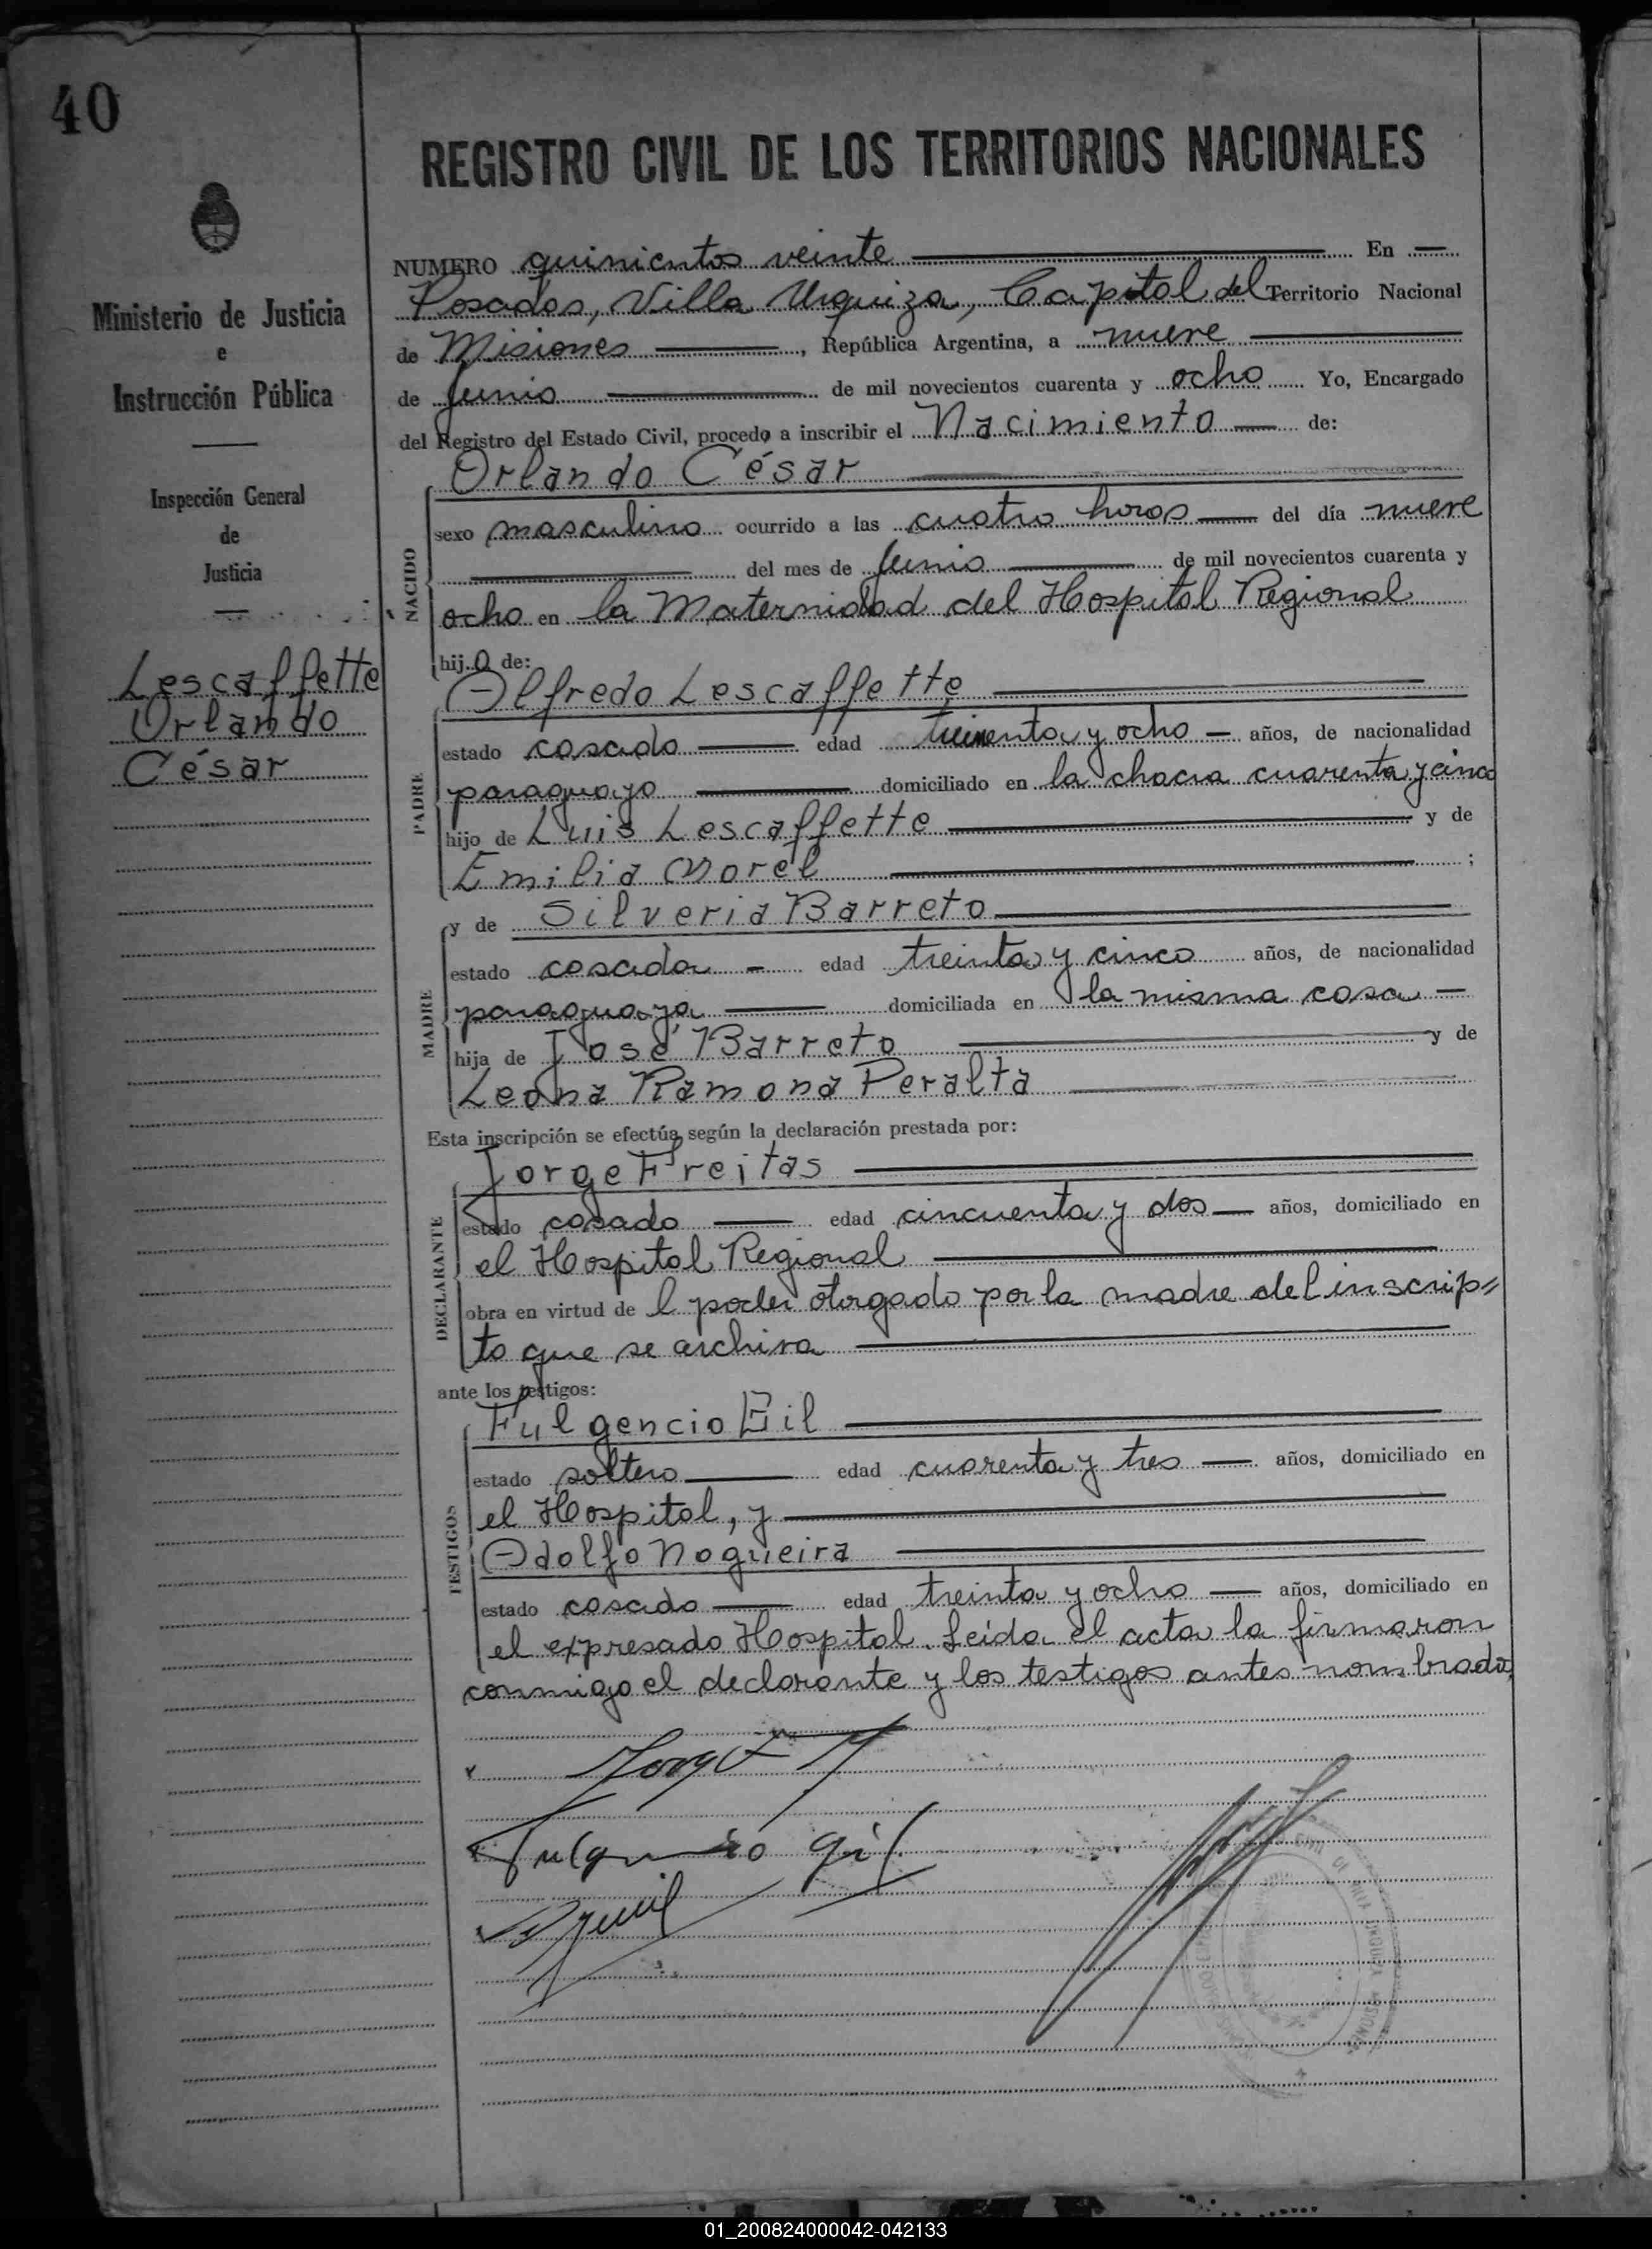 40
REGISTRO CIVIL DE LOS TERRITORIOS NACIONALES
Ministerio de Justicia
e
Instrucción Pública
Inspección General
de
Justicia
Lescaffette
Orlando
César
NUMERO quinientos veinte En
Posadas, Villa Urquiza, Capital del Territorio Nacional
de Misiones, República Argentina, a nueve
de Junio de mil novecientos cuarenta y ocho Yo, Encargado
del Registro del Estado Civil, procedo a inscribir el Nacimiento de:
Orlando César
NACIDO
sexo masculino ocurrido a las cuatro horas del día nueve
del mes de Junio de mil novecientos cuarenta y
ocho en la Maternidad del Hospital Regional
hijo de:
Alfredo Lescaffette
PADRE
estado casado edad y ocho años, de nacionalidad
paraguayo domiciliado en la chacra cuarenta y cinco
hijo de Luis Lescaffette y de
Emilia Morel ;
y de Silveria Barreto
MADRE
estado casada edad treinta y cinco años, de nacionalidad
paraguaya domiciliada en la misma casa
hija de José Barreto y de
Leona Ramona Peralta
Esta inscripción se efectúa según la declaración prestada por:
Jorge Freitas
DECLARANTE
estado casado edad cincuenta y dos años, domiciliado en
el Hospital Regional
obra en virtud de l poder otorgado por la madre del inscrip=
to que se archiva
ante los testigos:
Fulgencio Gil
TESTIGOS
estado soltero edad cuarenta y tres años, domiciliado en
el Hospital, y
Adolfo Nogueira
estado casado edad treinta y ocho años, domiciliado en
el expresado Hospital. Leída el acta la firmaron
conmigo el declarante y los testigos antes nombrados
Jorge F
Fulgencio Gil
01_200824000042-042133